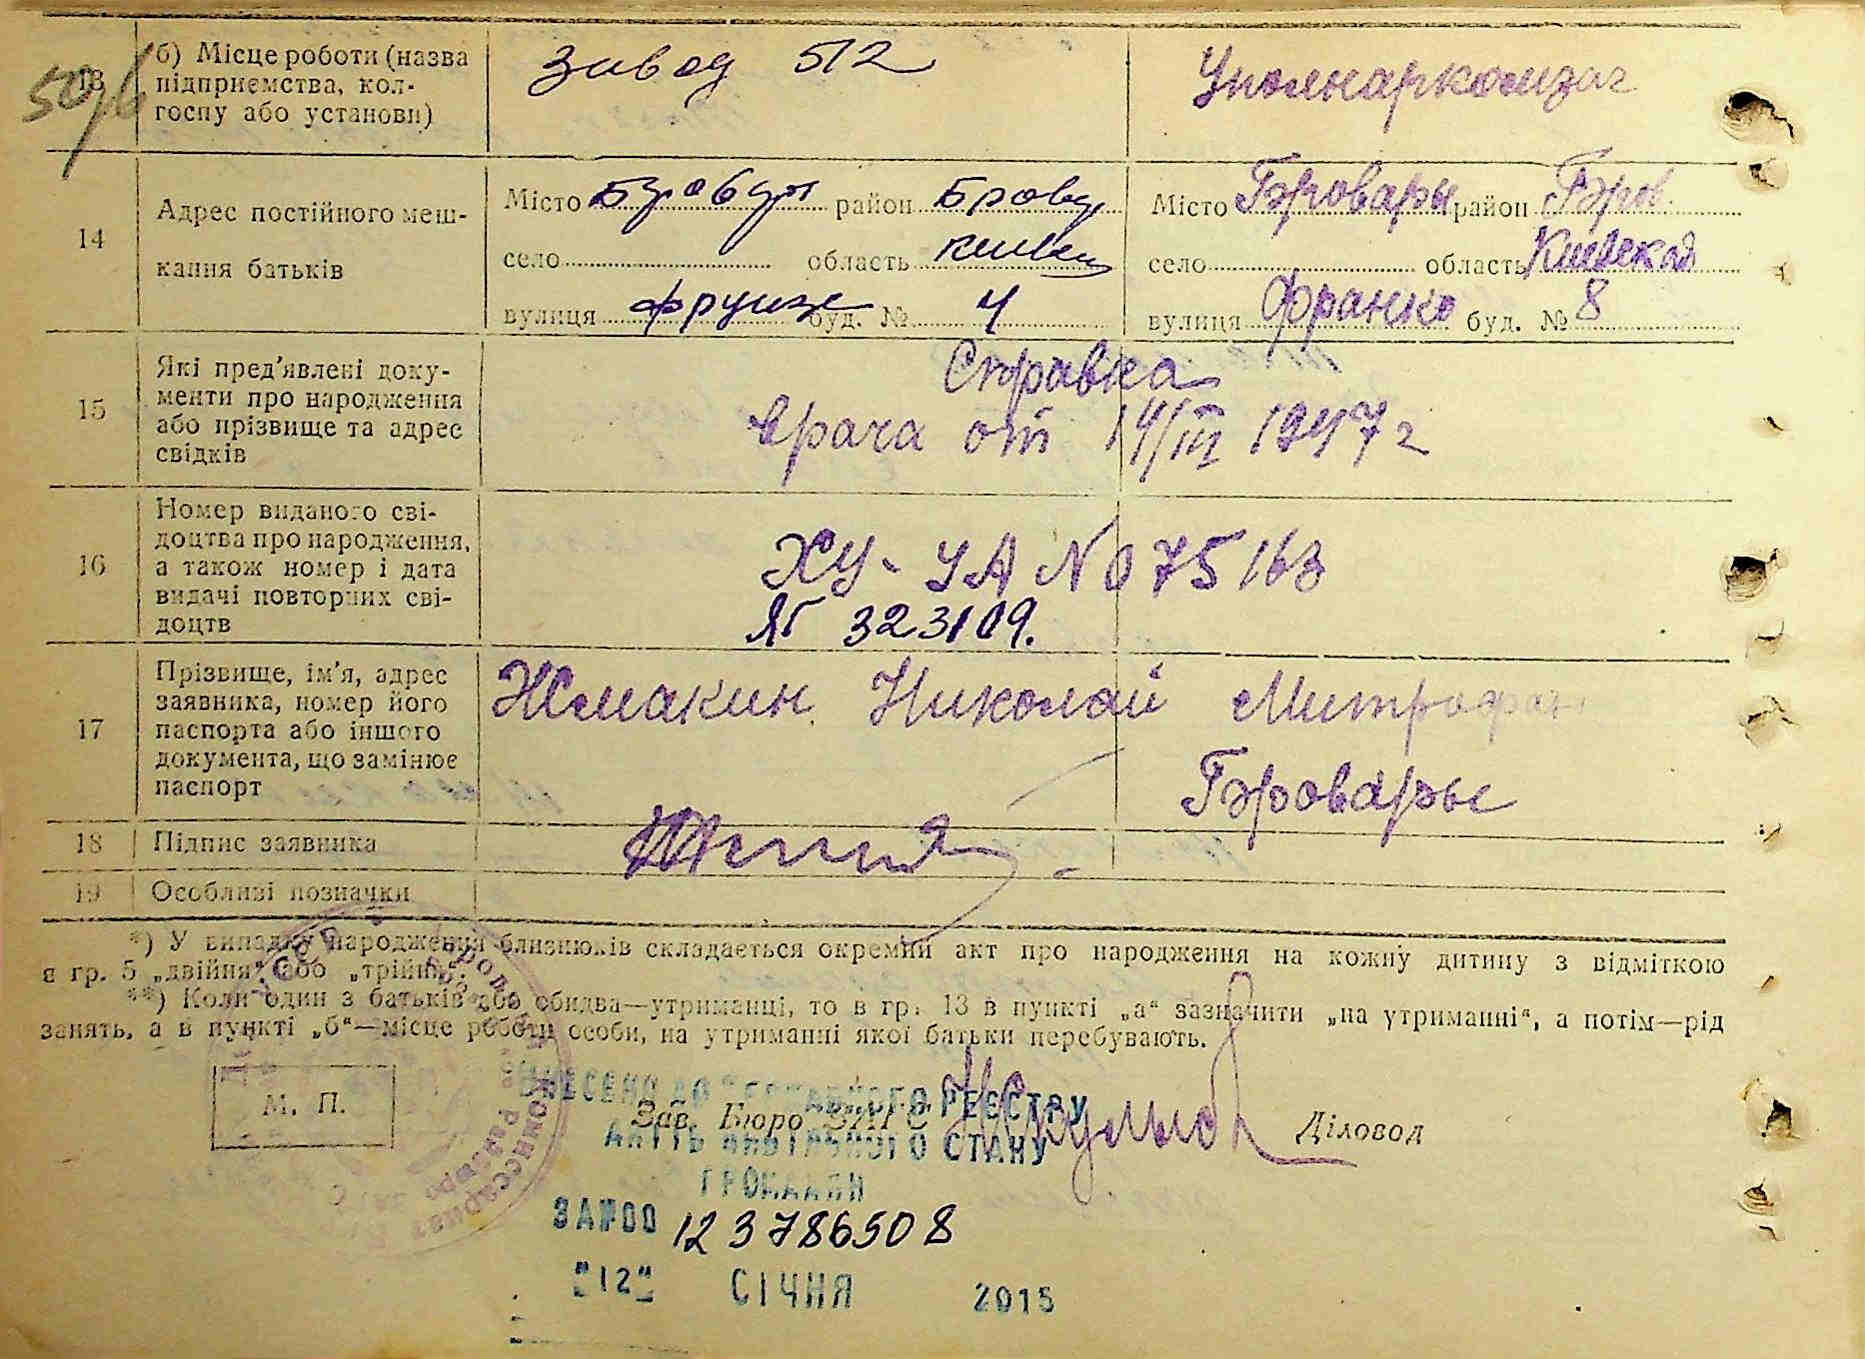 50/6
13
б) Місце роботи (назва
підприємства, кол-
госпу або установи)
Завод 512
Уполнаркомзаг
14
Адрес постійного меш-
кання батьків
Місто Бровари район Бровар
село область Киевск
вулиця Фрунзе буд. № 4
Місто Бровары район Бров.
село область Киевская
вулиця Франко буд. № 8
15
Які пред'явлені доку-
менти про народження
або прізвище та адрес
свідків
Справка
врача от 14/III 1947 г
16
Номер виданого сві-
доцтва про народження,
а також номер і дата
видачі повторних сві-
доцтв
ХУ-УА № 075163
№ 323109.
17
Прізвище, ім'я, адрес
заявника, номер його
паспорта або іншого
документа, що замінює
паспорт
Жмакин Николай Митрофан
Бровары
18
Підпис заявника
19
Особливі позначки
*) У випадку народження близнюків складається окремий акт про народження на кожну дитину з відміткою
в гр. 5 „двійня“ або „трійня“.
**) Коли один з батьків або обидва—утриманці, то в гр. 13 в пункті „а“ зазначити „на утриманні“, а потім—рід
занять, а в пункті „б“—місце роботи особи, на утриманні якої батьки перебувають.
М. П.
Зав. Бюро ЗАГС
Діловод
ВНЕСЕНО ДО ДЕРЖАВНОГО РЕЄСТРУ
АКТІВ ЦИВІЛЬНОГО СТАНУ
ГРОМАДЯН
ЗА №00 123786508
"12" СІЧНЯ 2015